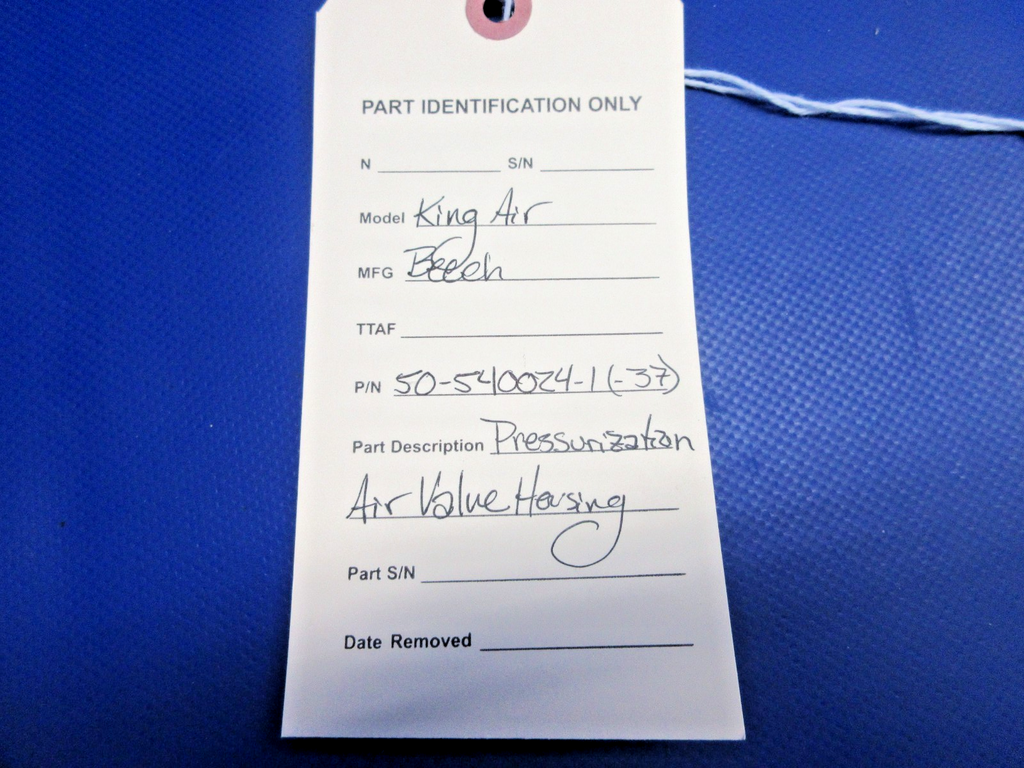 PART IDENTIFICATION ONLY
N S/N
Model King Air
MFG Beech
TTAF
P/N 50-540024-1 (-37)
Part Description Pressurization
Air Valve Housing
Part S/N
Date Removed